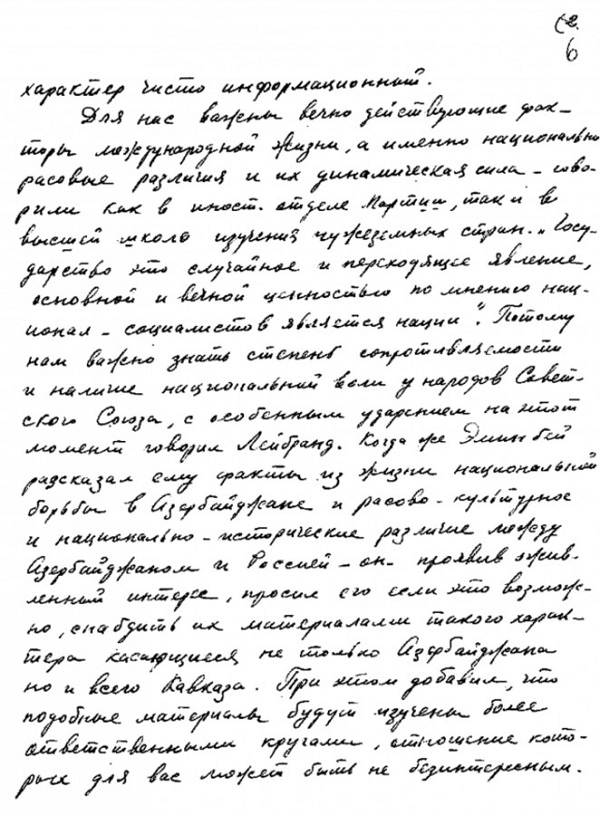 (2.
6
характер чисто информационный.
Для нас важны вечно действующие фак-
торы международной жизни, а именно национально
расовые различия и их динамическая сила – гово-
рили как в иност. отделе Партии, так и в
высшей школе изучения чужеземных стран. „Госу-
дарство это случайное и переходящее явление,
основной и вечной ценностью по мнению нац-
ионал-социалистов является нации“. Потому
нам важно знать степень сопротивляемости
и наличие национальной воли у народов Совет-
ского Союза, с особенным ударением на этот
момент говорил Лейбранд. Когда же Эмин бей
рассказал ему факты из жизни национальной
борьбы в Азербайджане и расово-культурное
и национально-исторические различие между
Азербайджаном и Россией – он проявив жив-
ленный интерес, просил его если это возмож-
но, снабдить их материалами такого харак-
тера касающиеся не только Азербайджана
но и всего Кавказа. При этом добавил, что
подобные материалы будут изучены более
ответственными кругами, отношение кото-
рых для вас может быть не безинтересным.